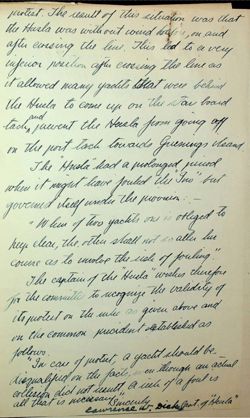 protest. The result of this situation was that
the Huela was without wind on and
after crossing the line. This led to a very
inferior position after crossing the line as
it allowed many yachts that were behind
the Huela to come up on the star board
tack, and prevent the Huela from going off
on the port tack towards Greenings Island
The "Huela" had a prolonged period
when it might have fouled the "Iris" but
governed itself under the provision: —
"When of two yachts one is obliged to
keep clear, the other shall not so alter her
course as to involve the risk of fouling"
The captain of the "Huela" wishes therefore
for the committee to recognize the validity of
its protest on the rule as given above and
on the common precedent established as
follows.
"In case of protest, a yacht should be
disqualified on the facts, even though an actual
collision did not result, a risk of a foul is
all that is necessary." Sincerely
Lawrence of "Huela"